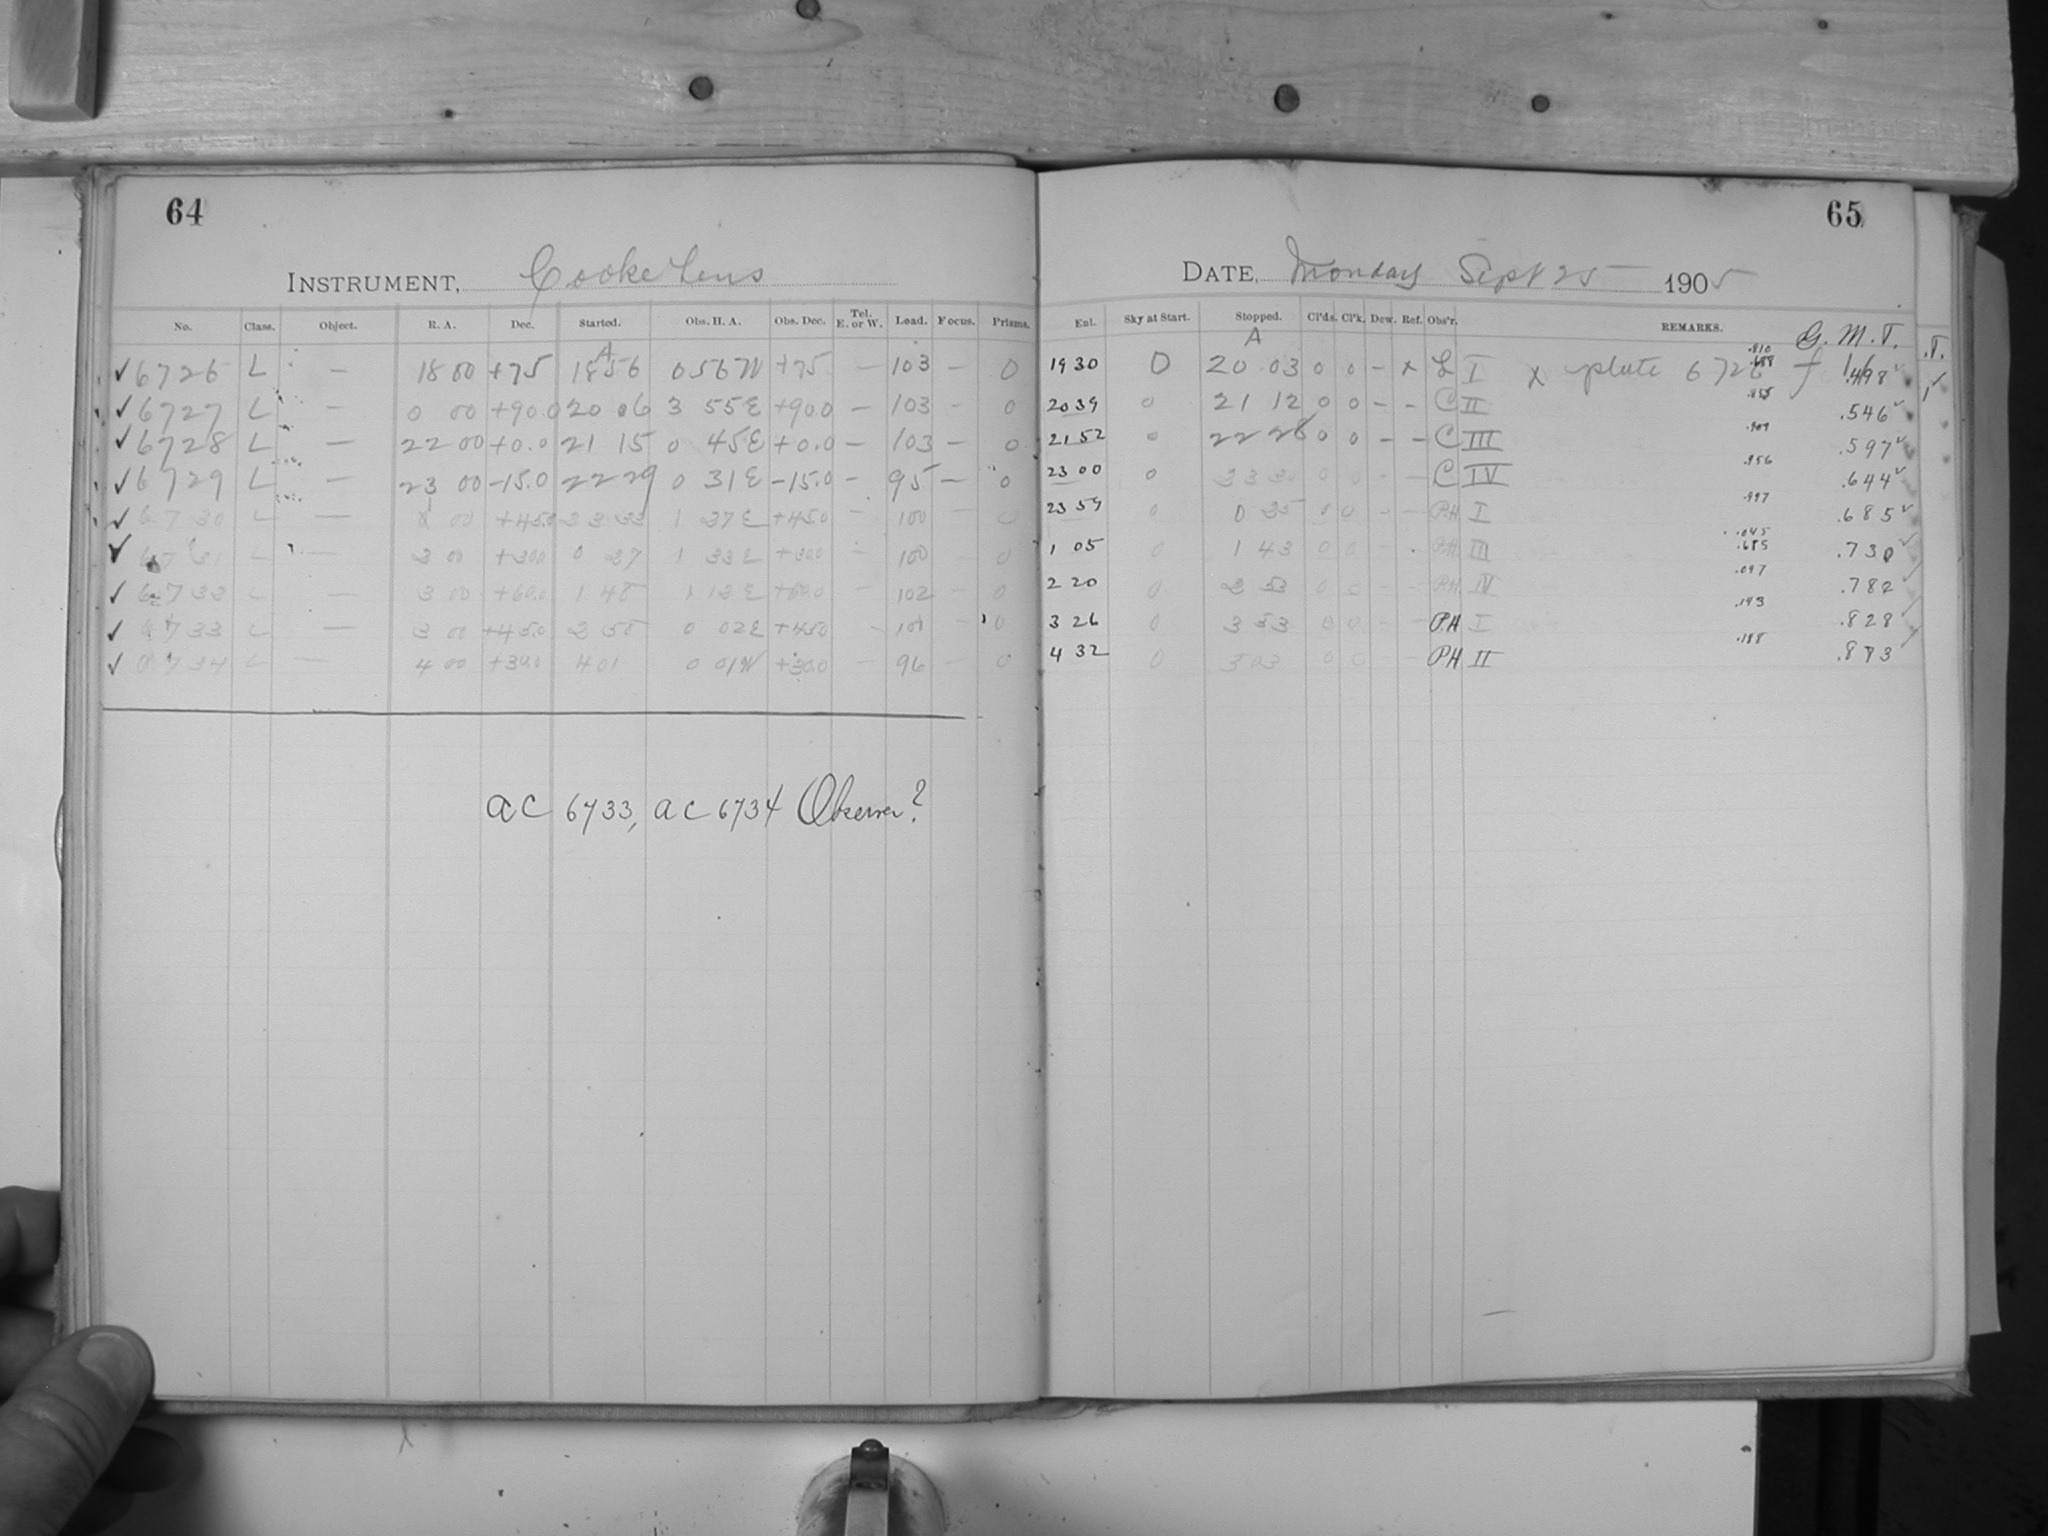 64
INSTRUMENT, Cooke Lens
No. Class. Object. R. A. Dec. Started. Obs. H. A. Obs. Dec. Tel. E. or W. Load. Focus. Prisms.
A
✓ 6726 L — 18 00 +75 18 56 0 56 W +75 — 103 — 0
✓ 6727 L — 0 00 +90.0 20 06 3 55 E +90.0 — 103 — 0
✓ 6728 L — 22 00 +0.0 21 15 0 45 E +0.0 — 103 — 0
✓ 6729 L — 23 00 -15.0 22 29 0 31 E -15.0 — 95 — 0
✓ 6730 L — 1 00 +45.0 23 23 1 37 E +45.0 — 100 — 0
✓ 6731 L — 2 00 +30.0 0 27 1 33 E +30.0 — 100 — 0
✓ 6732 L — 3 00 +60.0 1 48 1 12 E +60.0 — 102 — 0
✓ 6733 L — 3 00 +45.0 2 58 0 02 E +45.0 — 101 — 0
✓ 6734 L — 4 00 +30.0 4 01 0 01 W +30.0 — 96 — 0
a c 6733, a c 6734 Observer?
65
DATE, Monday Sept 25 1905
Ent. Sky at Start. Stopped. Cl'ds. Cl'k. Dew. Ref. Obs'r. REMARKS. G. M. T.
A
19 30 0 20 03 0 0 - x L I x plate 6726 .810 .498 ✓
20 39 0 21 12 0 0 - - C II .855 .546 ✓
21 52 0 22 28 0 0 - - C III .909 .597 ✓
23 00 0 23 30 0 0 - - C IV .956 .644 ✓
23 59 0 0 35 0 0 - - P.H I .997 .685 ✓
1 05 0 1 43 0 0 - . P.H III .045 .685 .730 ✓
2 20 0 2 53 0 0 - - P.H. IV .097 .782 ✓
3 26 0 3 53 0 0 - - P.H I .143 .828 ✓
4 32 0 5 03 0 0 - P.H II .188 .873
.T.